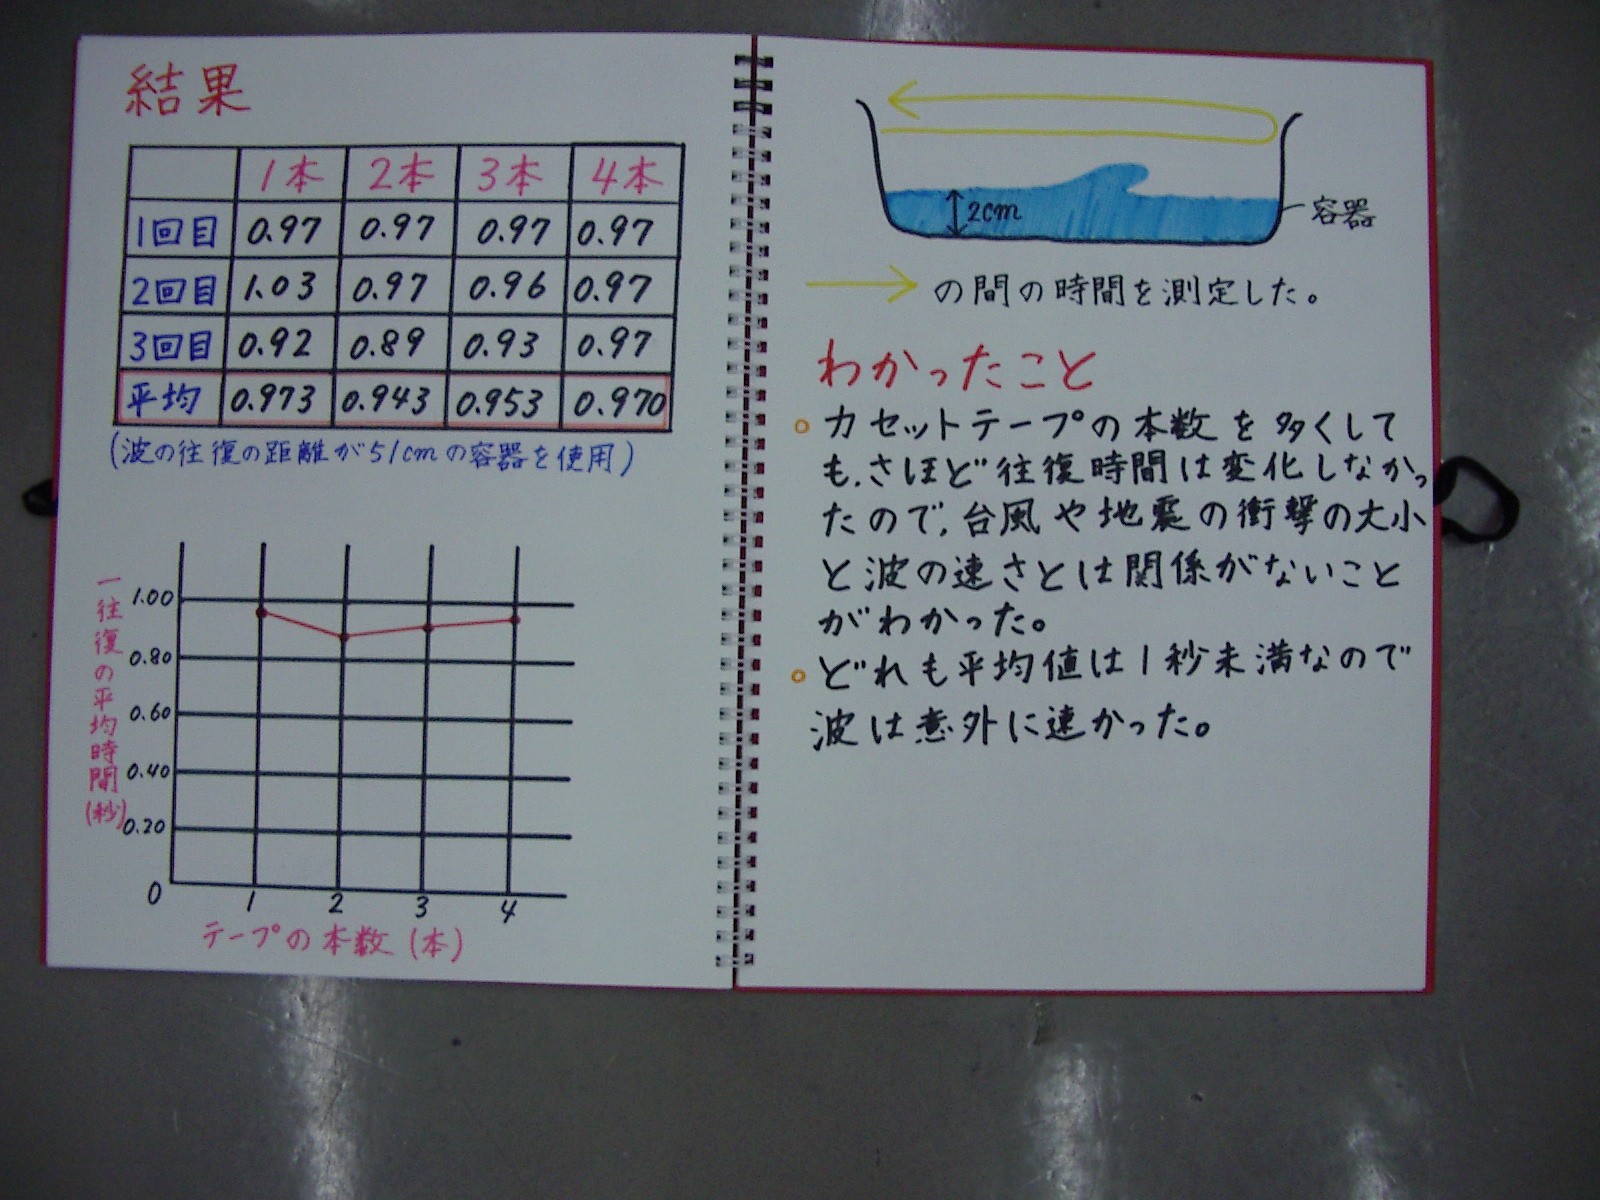 結果
1本 2本 3本 4本
1回目 0.97 0.97 0.97 0.97
2回目 1.03 0.97 0.96 0.97
3回目 0.92 0.89 0.93 0.97
平均 0.973 0.943 0.953 0.970
(波の往復の距離が51cmの容器を使用)
一往復の平均時間(秒)
1.00
0.80
0.60
0.40
0.20
0
1 2 3 4
テープの本数(本)
2cm
容器
の間の時間を測定した。
わかったこと
カセットテープの本数を多くして
も、さほど往復時間は変化しなかっ
たので、台風や地震の衝撃の大小
と波の速さとは関係がないこと
がわかった。
どれも平均値は1秒未満なので
波は意外に速かった。